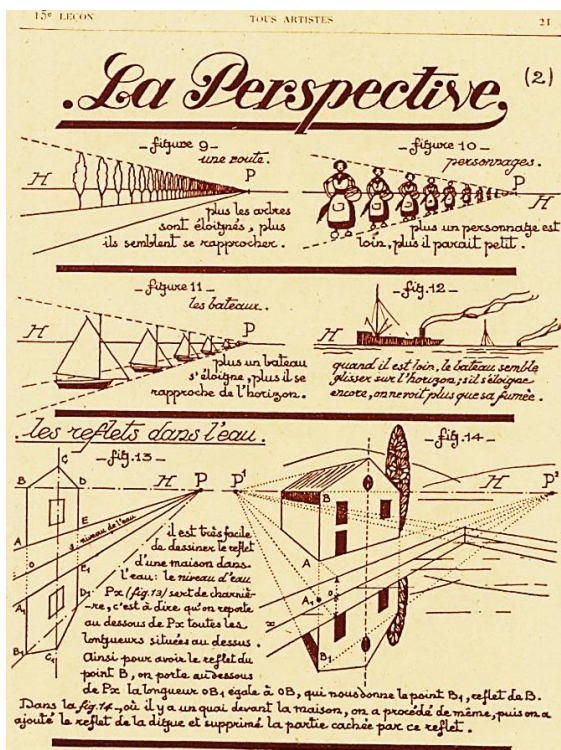 15e LEÇON TOUS ARTISTES 21
La Perspective. (2)
figure 9
une route.
H P
plus les arbres
sont éloignés, plus
ils semblent se rapprocher.
figure 10
personnages.
P
H
plus un personnage est
loin, plus il parait petit.
figure 11
les bateaux.
H P
plus un bateau
s'éloigne, plus il se
rapproche de l'horizon.
fig. 12
H
quand il est loin, le bateau semble
glisser sur l'horizon; s'il s'éloigne
encore, on ne voit plus que sa fumée.
les reflets dans l'eau.
fig. 13
C
B D H P
A E
o niveau de l'eau
E1
A1 D1
B1 C1
il est très facile
de dessiner le reflet
d'une maison dans
l'eau: le niveau d'eau
Px (fig. 13) sert de charniè-
-re, c'est à dire qu'on reporte
au dessous de Px toutes les
longueurs situées au dessus.
Ainsi pour avoir le reflet du
point B, on porte au dessous
de Px la longueur oB1 égale à oB, qui nous donne le point B1, reflet de B.
fig. 14
P1 B H P2
A
A1 o
x
B1
Dans la fig. 14 - où il y a un quai devant la maison, on a procédé de même, puis on a
ajouté le reflet de la digue et supprimé la partie cachée par ce reflet.